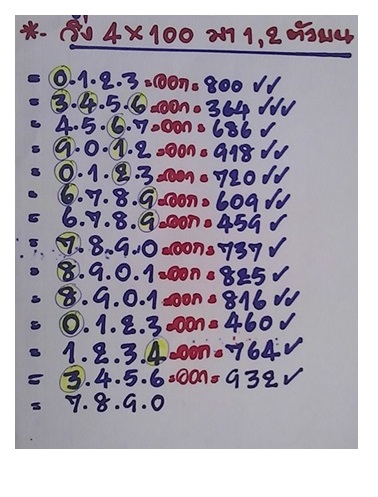 *- วิ่ง 4×100 มา 1,2 ตัวบน
= 0.1.2.3 =ออก= 800 ✓✓
= 3.4.5.6 =ออก= 364 ✓✓✓
= 4.5.6.7 =ออก= 686 ✓
= 9.0.1.2 =ออก= 918 ✓✓
= 0.1.2.3 =ออก= 720 ✓✓
= 6.7.8.9 =ออก= 609 ✓✓
= 6.7.8.9 =ออก= 459 ✓
= 7.8.9.0 =ออก= 737 ✓
= 8.9.0.1 =ออก= 825 ✓
= 8.9.0.1 =ออก= 816 ✓✓
= 0.1.2.3 =ออก= 460 ✓
= 1.2.3.4 =ออก= 764 ✓
= 3.4.5.6 =ออก= 932 ✓
= 7.8.9.0